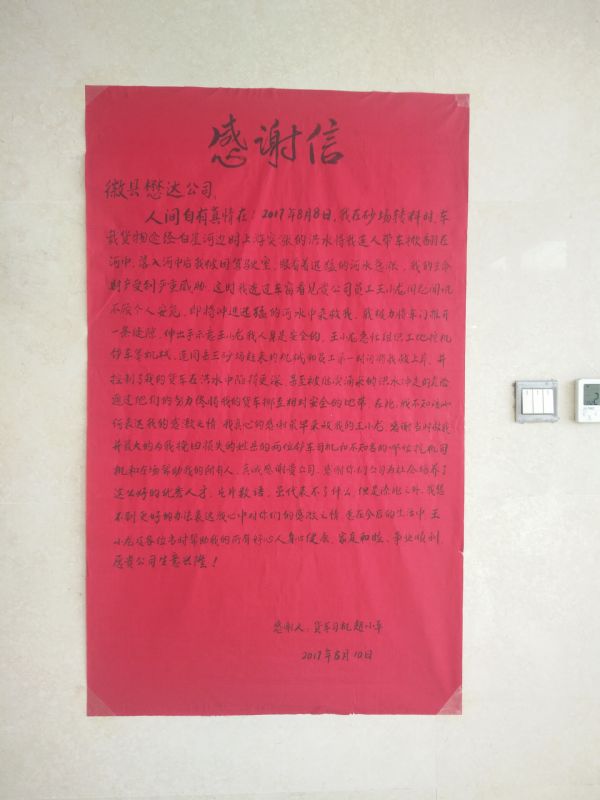 感谢信
徽县懋达公司,
人间自有真情在！2017年8月8日,我在砂场转料时,车
载货物途径白崖河边时上游突涨的洪水将我连人带车掀翻在
河中,落入河中后我被困驾驶室,眼看着迅猛的河水急涨,我的生命
财产受到严重威胁,这时我透过车窗看见贵公司员工王小龙同志
不顾个人安危,即将冲进迅猛的河水中来救我,我极力将车门推开
一条缝隙,伸出手示意王小龙我人身是安全的,王小龙急忙组织工地挖机
铲车等机械,连同三砂场赶来的机械和员工第一时间将我救上岸,并
控制了我的货车在洪水中陷得更深,甚至被他突涌来的洪水冲走的危险
通过他们的努力终将我的货车挪至相对安全的地带,在此,我不知该如
何表达我的感激之情,我真心的感谢最早来救我的王小龙,感谢当时救我
并最大的为我挽回损失的姓岳的两位铲车司机和不知名的哪位挖机司
机和在场帮助我的所有人,真诚感谢贵公司,感谢你们公司为社会培养了
这么好的优秀人才,片片数语,虽代表不了什么,但是除此之外,我想
不到更好的办法表达我心中对你们的感激之情,愿在今后的生活中,王
小龙及各位当时帮助我的所有好心人身心健康,家庭和睦,事业顺利,
愿贵公司生意兴隆！
感谢人：货车司机赵小军
2017年8月10日